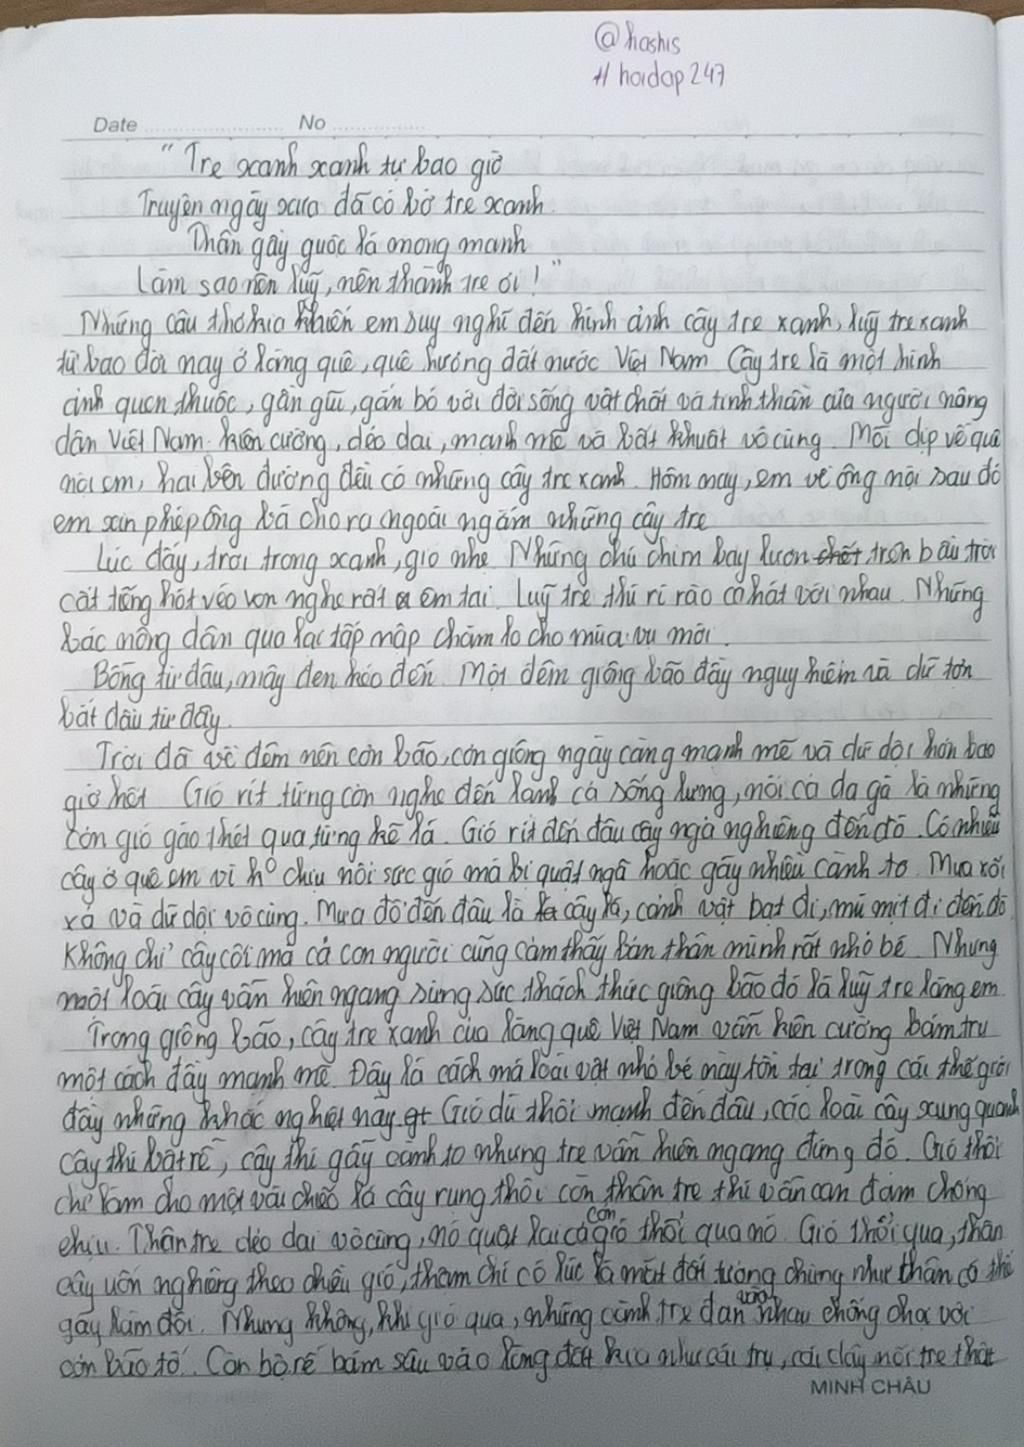 @hashis
# hoidap247
Date No
"Tre xanh xanh tự bao giờ
Truyện ngày xưa đã có bờ tre xanh.
Thân gầy guộc lá mong manh
Làm sao nên luỹ, nên thành tre ơi!"
Những câu thơ kia khiến em suy nghĩ đến hình ảnh cây tre xanh, luỹ tre xanh
từ bao đời nay ở làng quê, quê hương đất nước Việt Nam. Cây tre là một hình
ảnh quen thuộc, gần gũi, gắn bó với đời sống vật chất và tinh thần của người nông
dân Việt Nam: kiên cường, dẻo dai, mạnh mẽ và bất khuất vô cùng. Mỗi dịp về quê
nội em, hai bên đường đều có những cây tre xanh. Hôm nay, em về ông nội sau đó
em xin phép ông bà cho ra ngoài ngắm những cây tre
Lúc đấy, trời trong xanh, gió nhẹ. Những chú chim bay lượn trên bầu trời
cất tiếng hót véo von nghe rất êm tai. Luỹ tre thì rì rào ca hát với nhau. Những
bác nông dân qua lại tấp nập chăm lo cho mùa vụ mới.
Bỗng từ đâu, mây đen kéo đến. Một đêm giông bão đầy nguy hiểm và dữ tợn
bắt đầu từ đây.
Trời đã về đêm nên cơn bão, cơn giông ngày càng mạnh mẽ và dữ dội hơn bao
giờ hết. Gió rít từng cơn nghe đến lạnh cả sống lưng, nổi cả da gà là những
cơn gió gào thét qua từng kẽ lá. Gió rít đến đâu cây ngả nghiêng đến đó. Có nhiều
cây ở quê em vì k° chịu nổi sức gió mà bị quật ngã hoặc gãy nhiều cành to. Mưa xối
xả và dữ dội vô cùng. Mưa đổ đến đâu là cây lá, cảnh vật bạt đi, mù mịt đi đến đó.
Không chỉ cây cối mà cả con người cũng cảm thấy bản thân mình rất nhỏ bé. Nhưng
một loài cây vẫn hiên ngang sừng sức thách thức giông bão đó là luỹ tre làng em.
Trong giông bão, cây tre xanh của làng quê Việt Nam vẫn kiên cường bám trụ
một cách đầy mạnh mẽ. Đây là cách mà loài vật nhỏ bé này tồn tại trong cái thế giới
đầy những khắc nghiệt này. Gió dù thổi mạnh đến đâu, các loài cây xung quanh
cây thì bật rễ, cây thì gẫy cành to nhưng tre vẫn hiên ngang đứng đó. Gió thổi
chỉ làm cho một vài chiếc lá cây rung thôi còn thân tre thì vẫn can đảm chống
chịu. Thân tre dẻo dai vô cùng, nó quật lại cả cơn gió thổi qua nó. Gió thổi qua, thân
cây uốn nghiêng theo chiều gió, thậm chí có lúc là mất đối tượng chừng như thân có thể
gãy làm đôi. Nhưng không, khi gió qua, những cành tre đan vào nhau chống chọi với
cơn bão tố. Còn bộ rễ bám sâu vào lòng đất kia như cái trụ, cái dây nối tre thật
MINH CHÂU